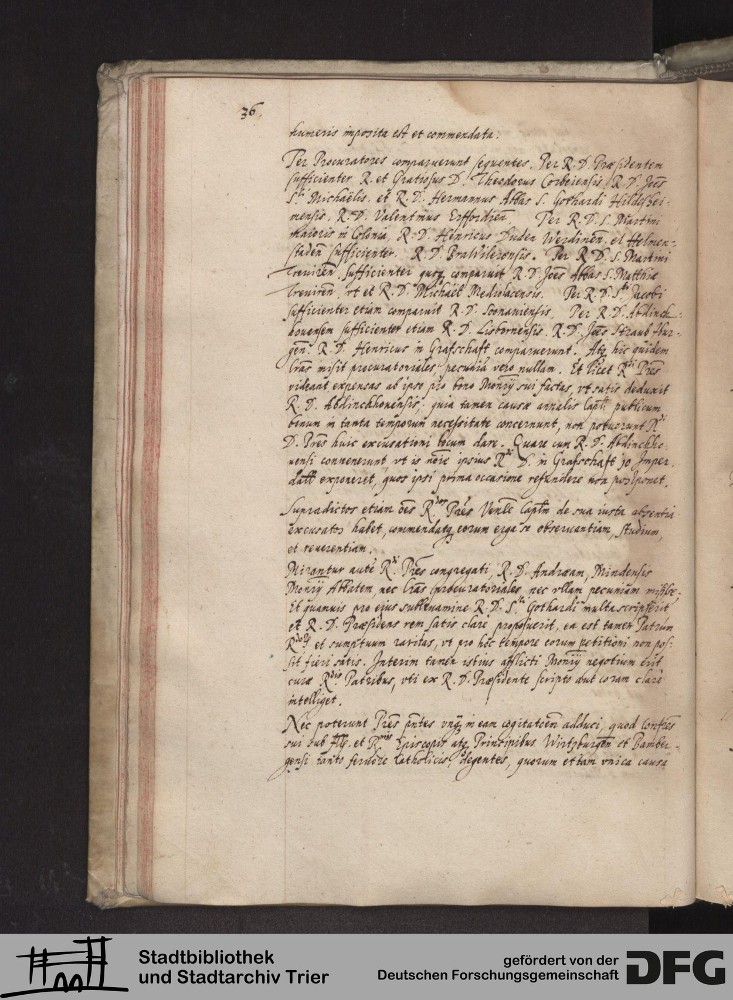 36.
humeris imposita est et commendata.
Per Procuratores comparuerunt sequentes. Per R. D. Præsidentem
sufficienter R. et Gratiosus D. Theodorus Corbeiensis, R. D. Joēs
S.ti Michaëlis, et R. D. Hermannus Abbas S. Gothardi Hildeshei-
mensis. R. D. Valentinus Erffordien̄ Per R. D. S. Martini
Maioris in Colonia, R. D. Henricus Duden Werdinen̄. et Helmen-
staden̄ sufficienter. R. D. Brawilerensis. Per R. D. S. Martini
Treviren̄. sufficienter quoq. comparuit R. D. Joēs Abbas S. Matthiæ
Treviren̄, vt et R. D. Michaël Mediolacensis. Per R. D. S.ti Jacobi
sufficienter etiam comparuit R. D. Sconaviensis. Per R. D. Abdinck-
hovensem sufficienter etiam R. D. Lisbornensis. R. D. Joēs Straub
gen̄. R. D. Henricus in Grafschaft comparuerunt. Atq. hic quidem
Lr̄as misit procuratoriales pecunia vero nullam. Et licet R.di Pr̄es
videant expensas ab ipso pro bono Monrÿ sui factas, vt satis deduxit
R. D. Abdinckhovensis: quia tamen causæ annalis Cap̄li publicum
bonum in tanta temporum necessitate concernunt, non potuerunt R.di
D. Pr̄es huic excusationi locum dare. Quare cum R. D. Abdinckho-
vensi convenerunt, vt is nōie ipsius R.di D. in Grafschaft 30 Imper.
dall exponeret, quos ipsi prima occasione refundere non postponet.
Supradictos etiam oēs R.dos Pr̄es Ven̄le Cap̄lm de sua iusta absentia
excusatos habet, commendatq. eorum erga se observantiam, studium,
et reverentiam.
Mirantur autē R.di Pr̄es congregati, R. D. Andræam, Mindensis
Monrÿ Abbatem, nec Lr̄as procuratoriales, nec vllam pecuniam misisse.
Et quamvis pro eius sublevamine R. D. S.ti Gothardi multa scripserit
et R. D. Præsidens rem satis clare proposuerit, ea est tamen Patrum
et sumptuum raritas, vt pro hoc tempore eorum petitioni non pos-
sit fieri satis. Interim tamen istius afflicti Monrÿ negotium erit
curæ R.dis Patribus, vti ex R. D. Præsidente scripto aut coram clarè
intelliget.
Nec poterunt Pr̄es pn̄tes vnq. in eam cogitatōem adduci, quod Confr̄es
sui sub et R.mis Episcopis atq. Principibus Wirtzburgen̄ et Bamber-
gensi tanto fervore Catholicis, degentes, quorum etiam vnica causa
Stadtbibliothek
und Stadtarchiv Trier
gefördert von der
Deutschen Forschungsgemeinschaft
DFG